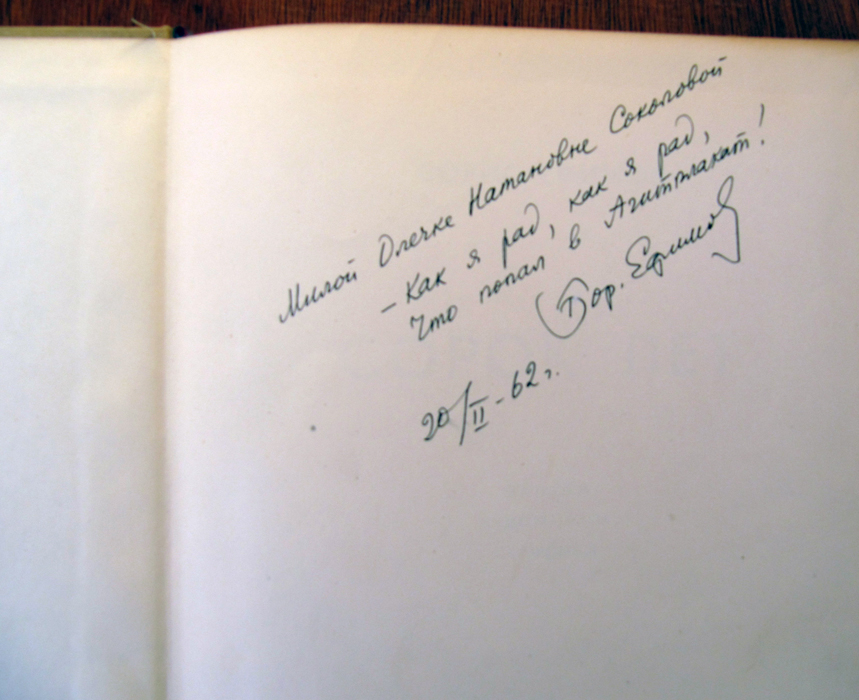 Милой Олечке Натановне Соколовой
– Как я рад, как я рад,
Что попал в Агитплакат!
Бор. Ефимов
20/II – 62 г.